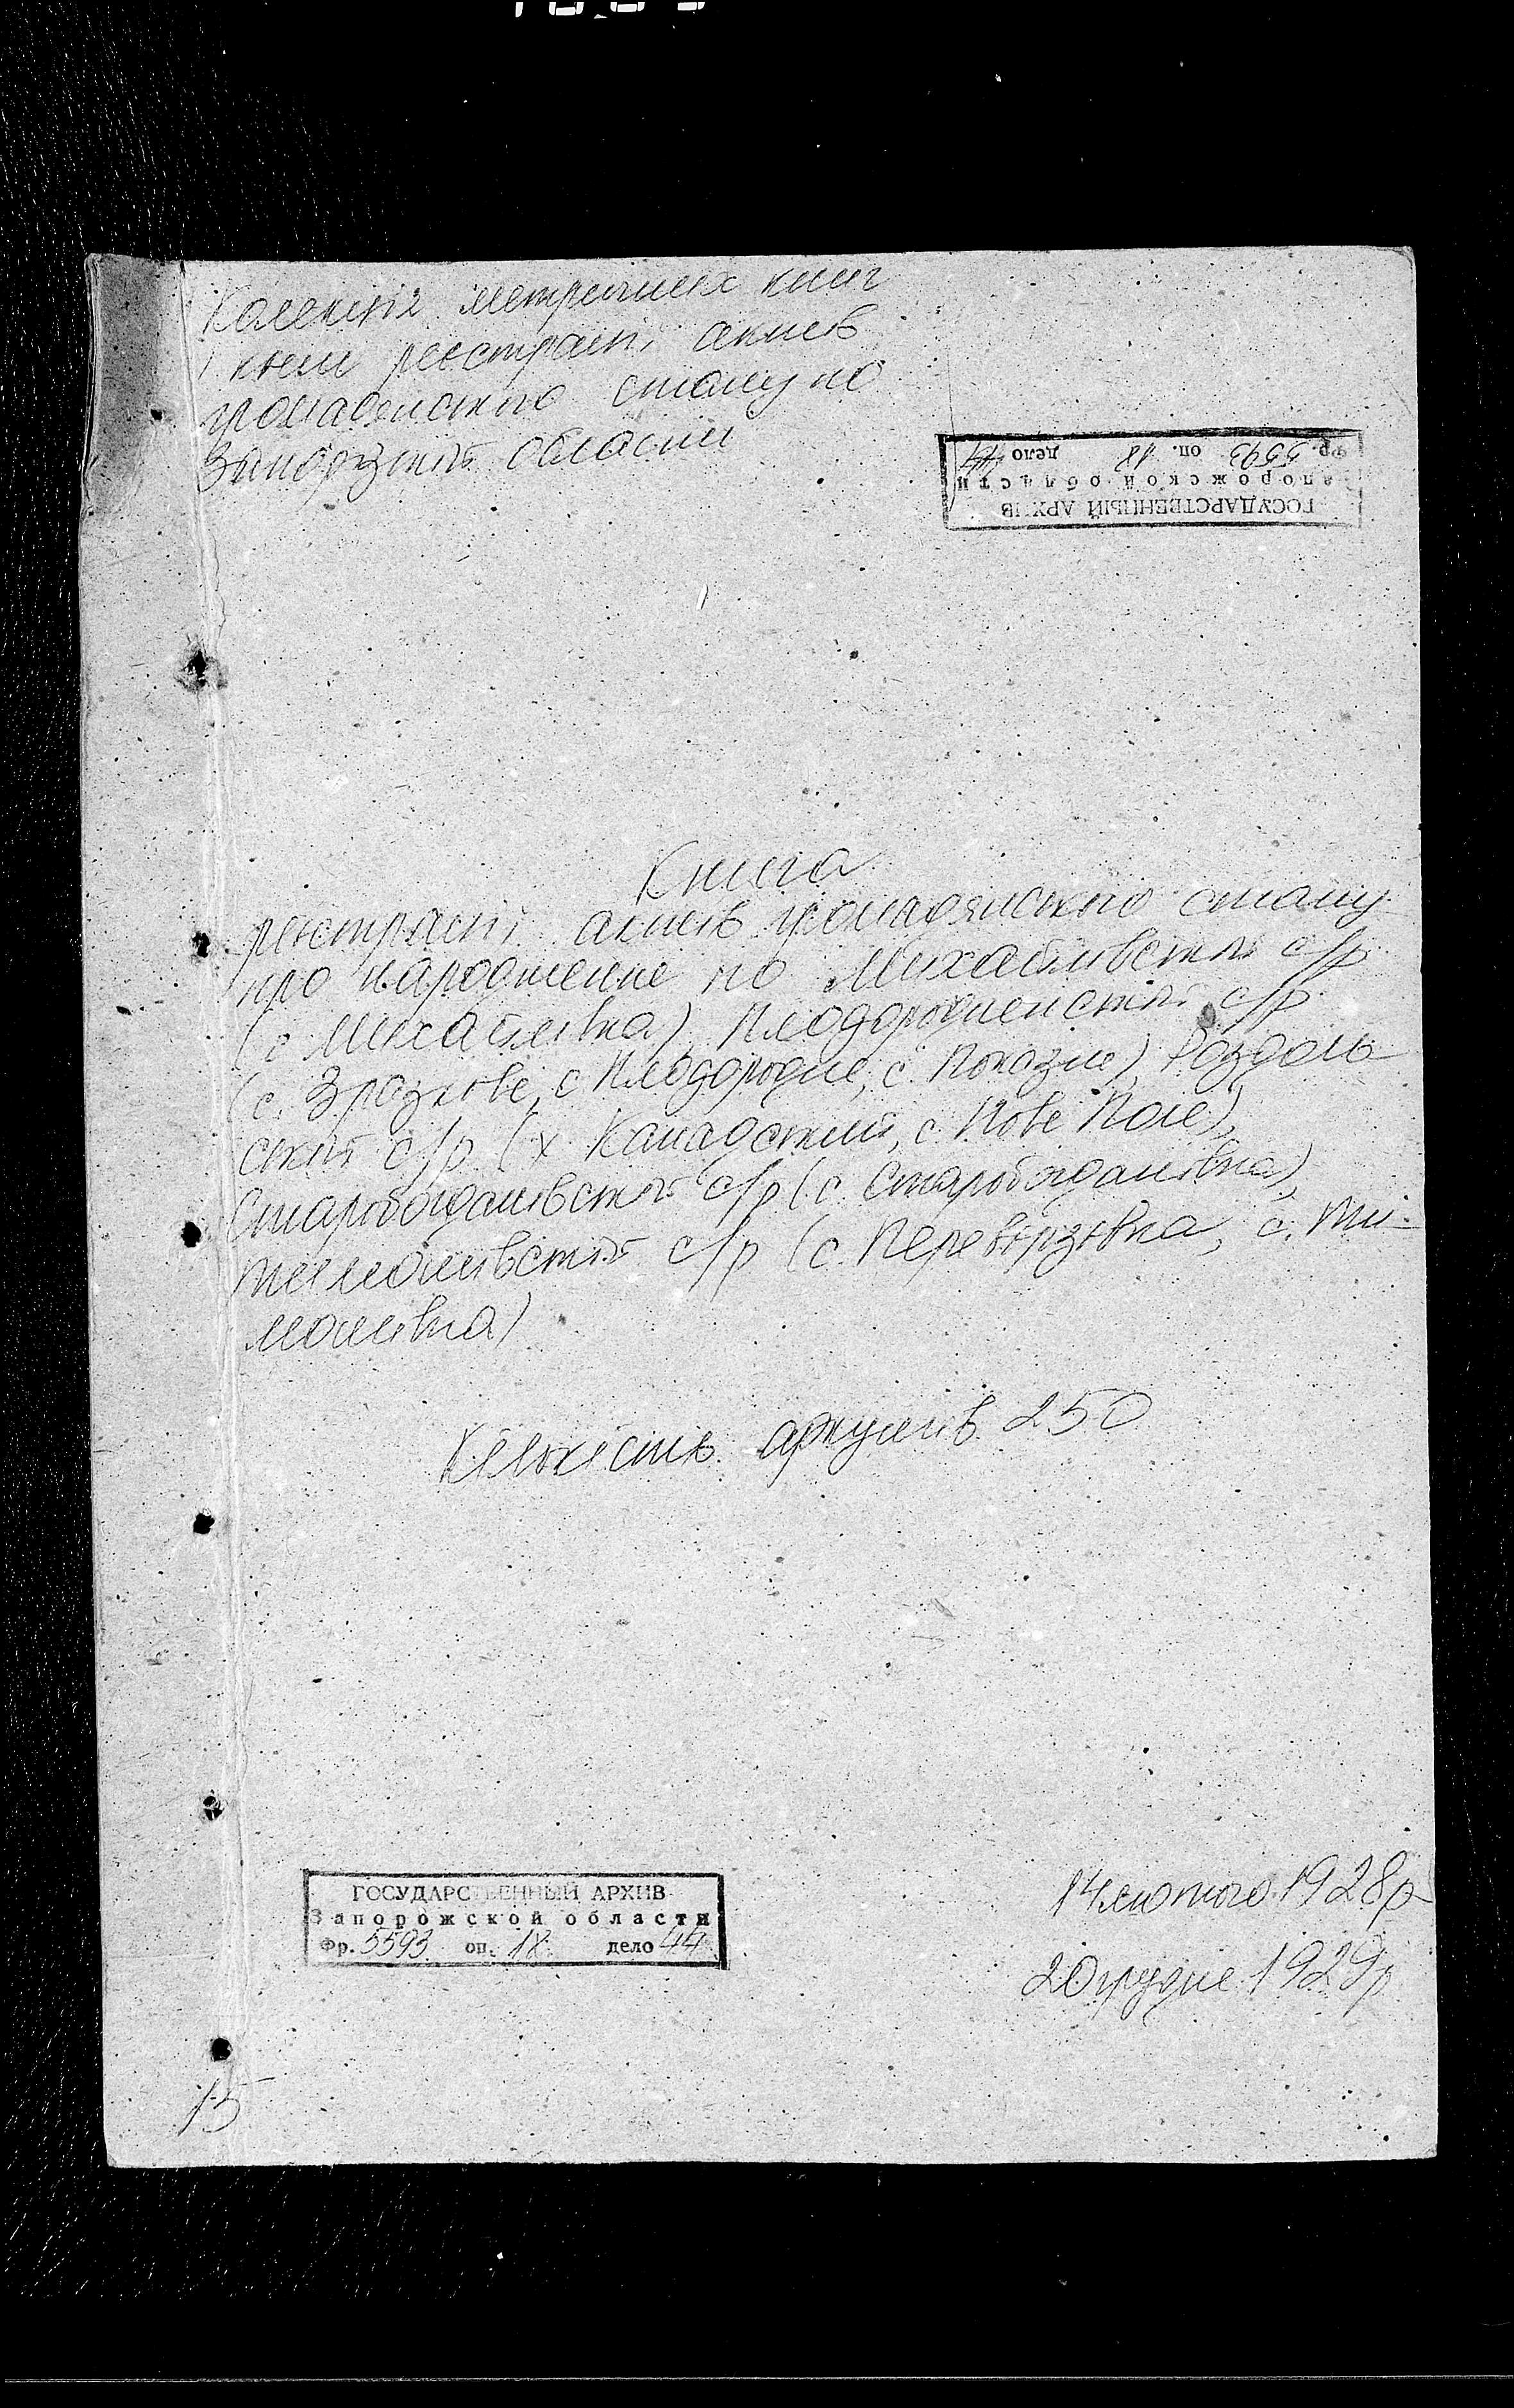 Колекція метричних книг
і книг реєстрації актів
громадянського стану по
Запорізькій області
ГОСУДАРСТВЕННЫЙ АРХИВ
Запорожской области
Фр. 5593 оп. 18 дело 44
Книга
реєстрації актів громадянського стану
про народження по Михайлівській с/р
(с Михайлівка), Плодородненській с/р
(с. Зразкове, с Плодородне, с. Показне), Роздоль-
ській с/р (х Канадський, с. Нове Поле),
Старобогданівській с/р (с. Старобогданівка),
Тимошівській с/р (с. Переворзівка, с. Ти-
мошівка)
Кількість аркушів 250
ГОСУДАРСТВЕННЫЙ АРХИВ
Запорожской области
Фр. 5593 оп. 18 дело 44
14 лютого 1928 р
20 грудня 1929 р
15